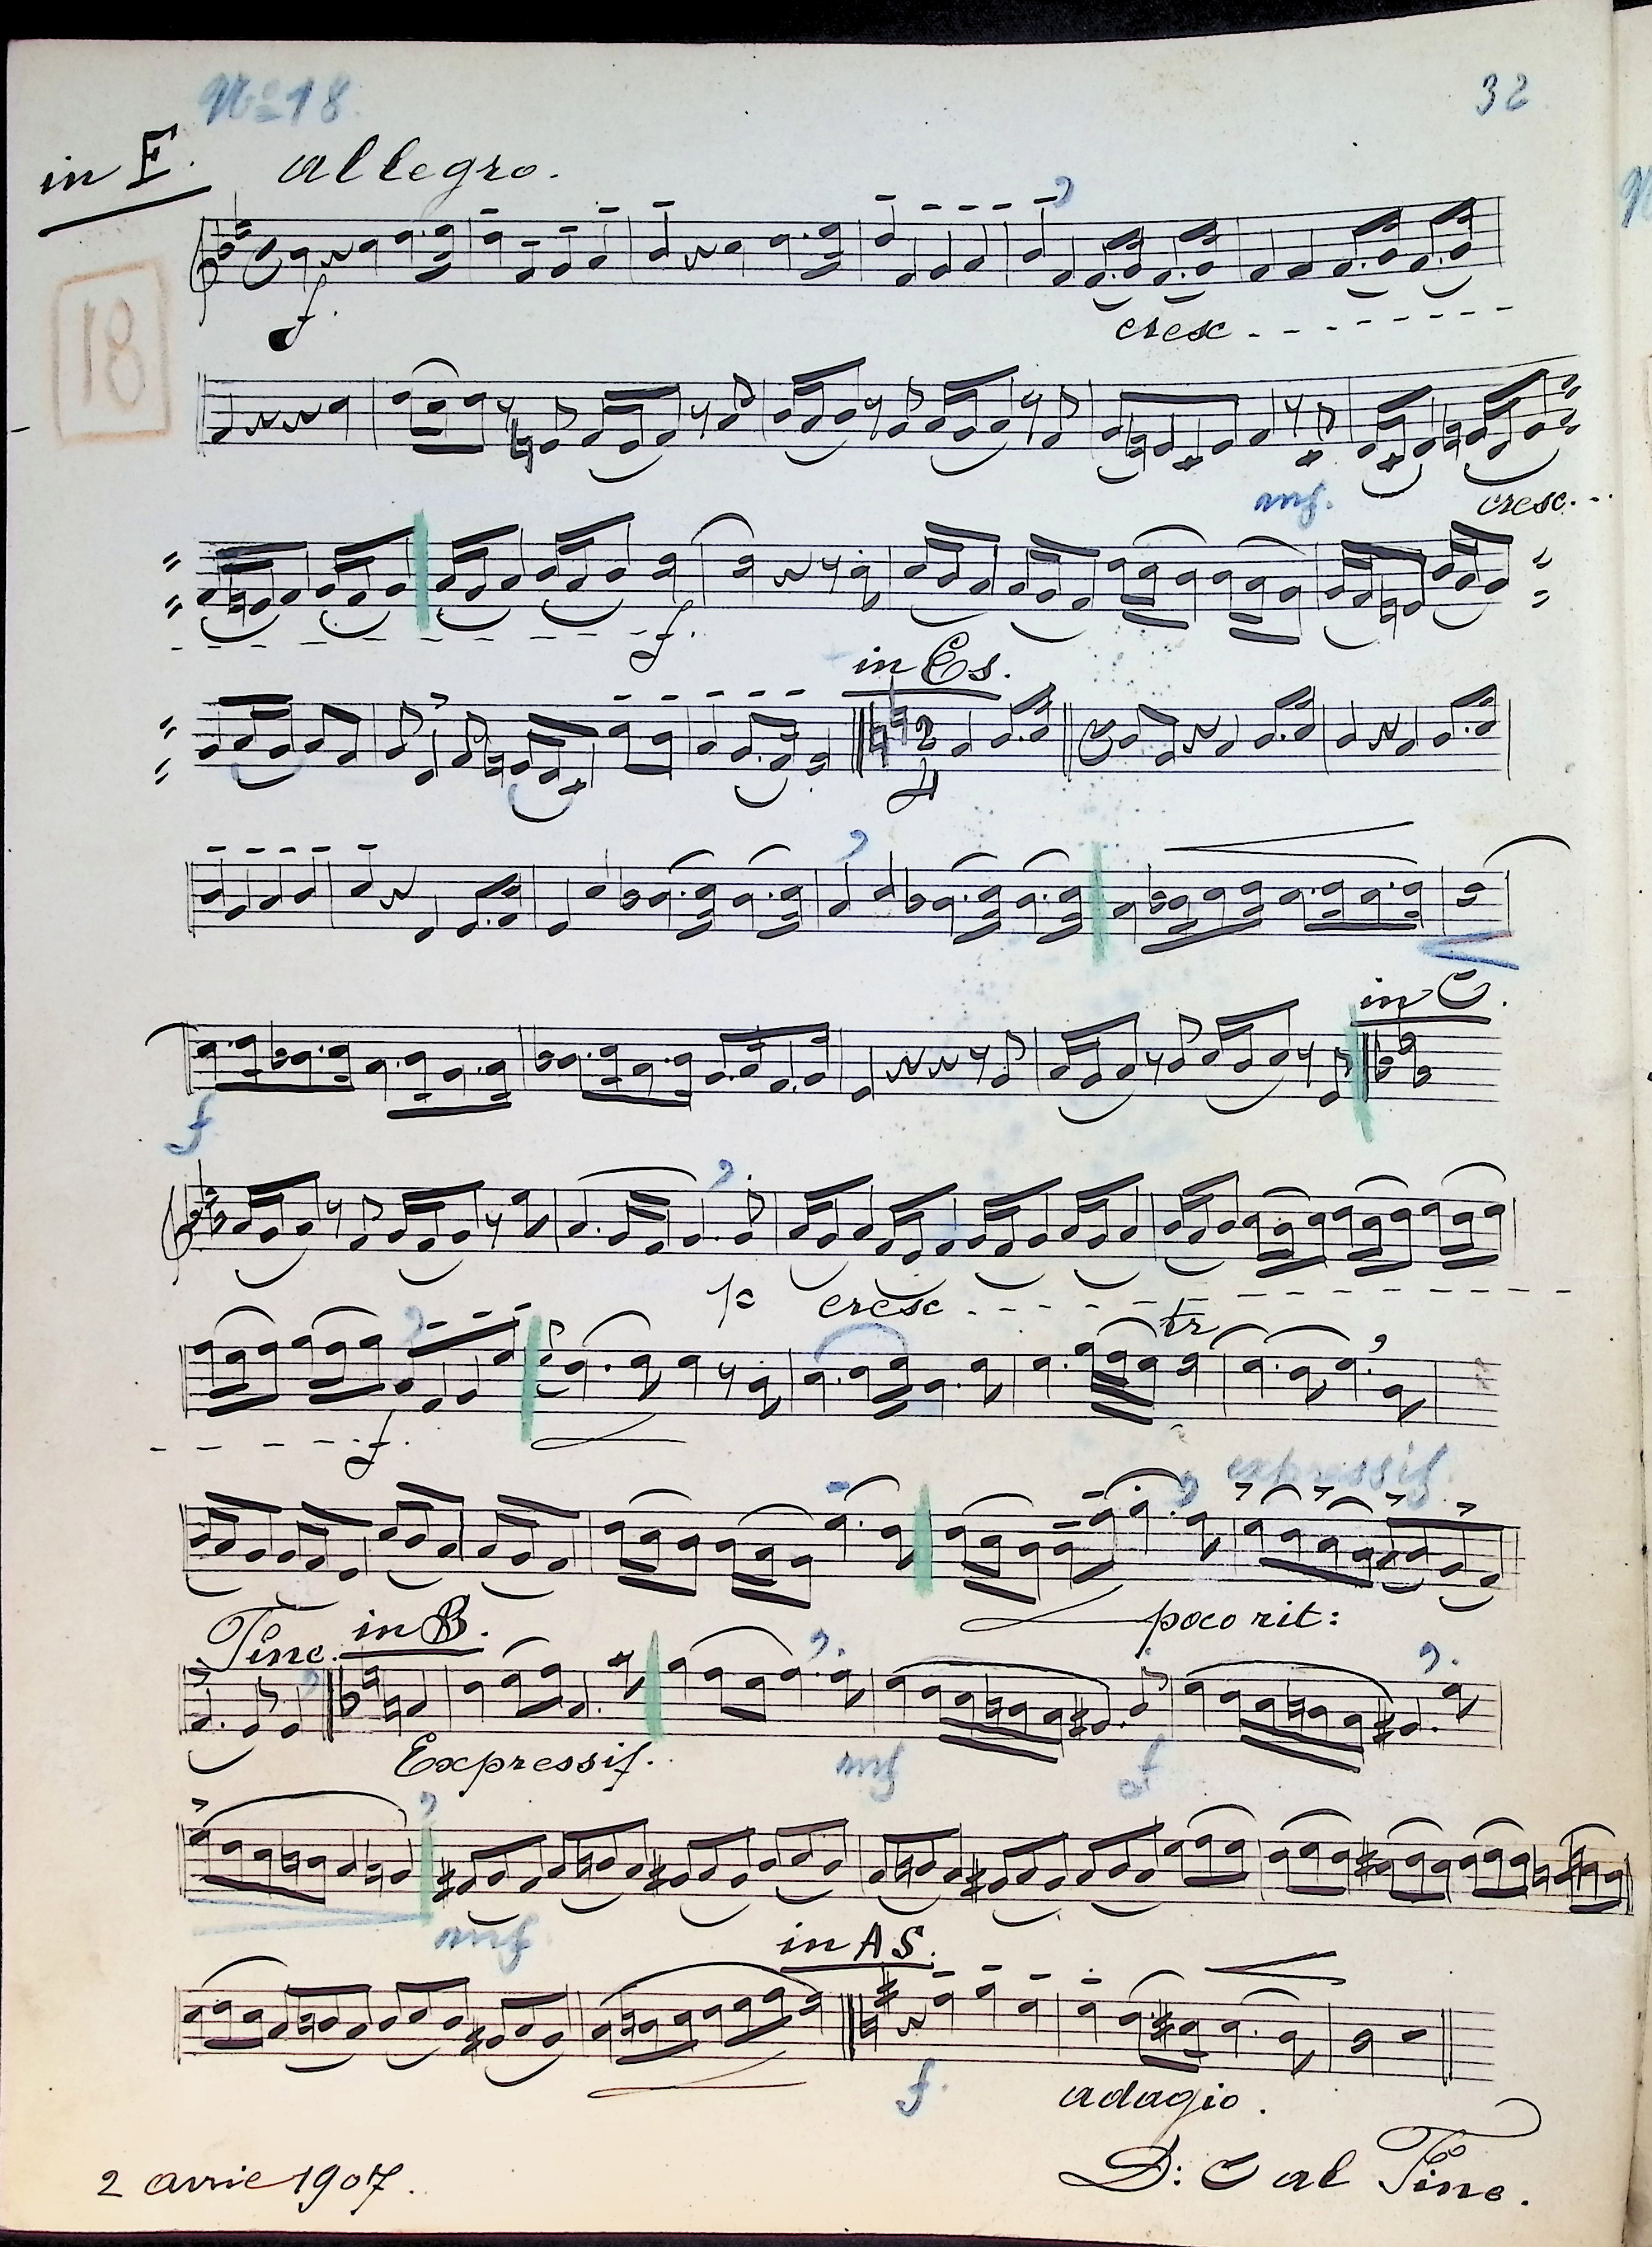 Nº 18. 32
in E. allegro.
18
f. cresc
mf. cresc.
f.
in Es.
2
4
in C.
f
cresc
tr
f.
expressif.
poco rit:
Fine. in B.
Expressif. mf f
mf
in AS.
f. adagio.
2 avril 1907. D: C al Fine.